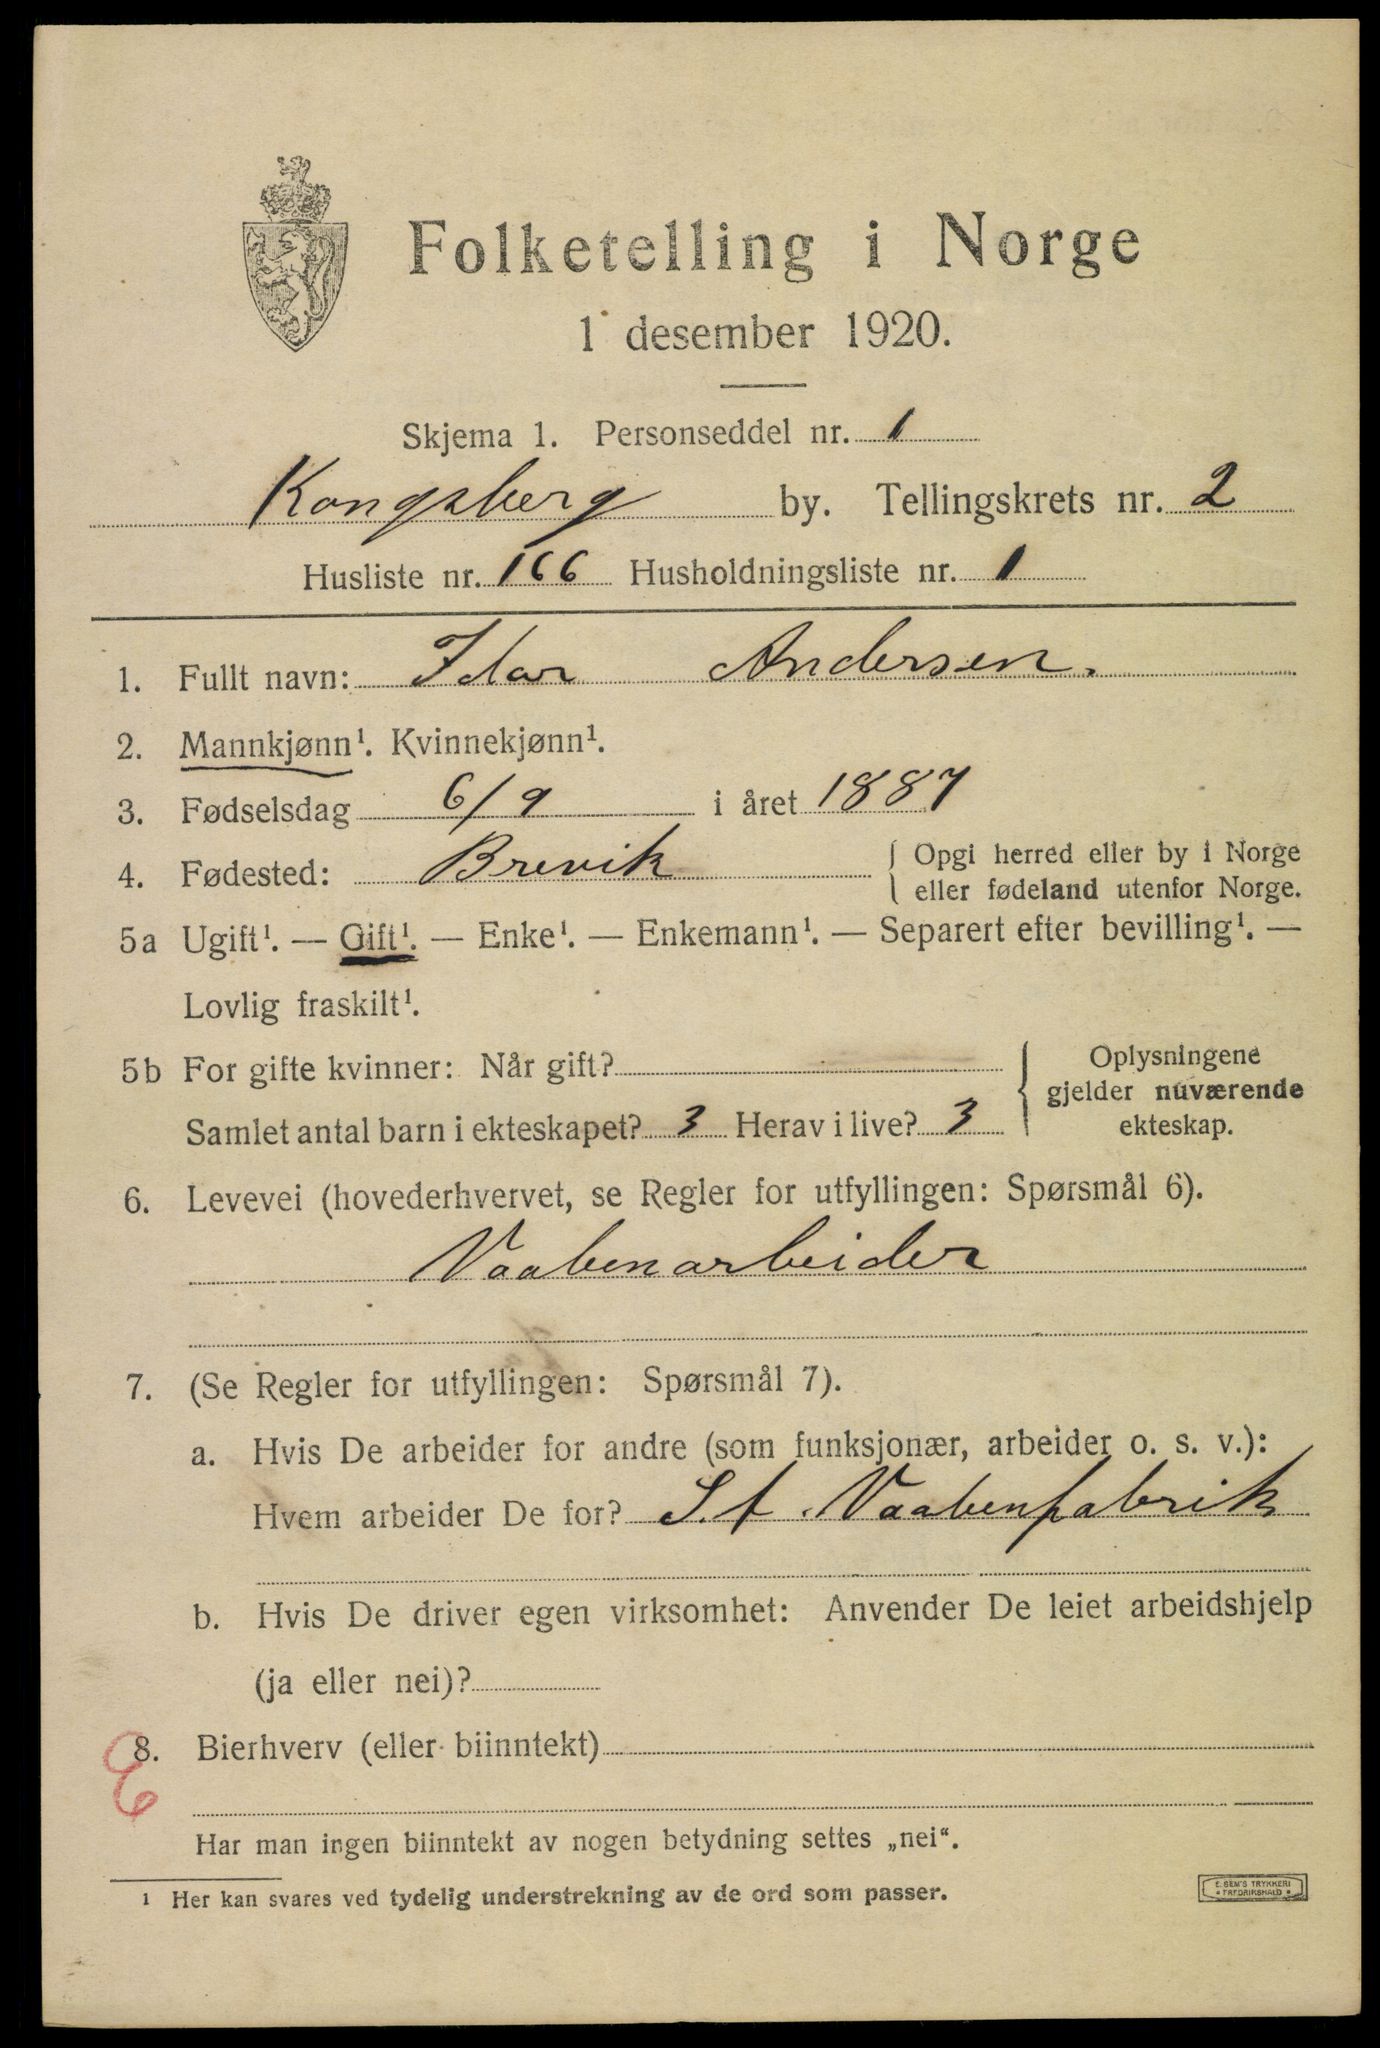 Folketelling i Norge
1 desember 1920.
Skjema 1. Personseddel nr. 1
Kongsberg by. Tellingskrets nr. 2
Husliste nr. 166 Husholdningsliste nr. 1
1. Fullt navn: Idar Andersen.
2. Mannkjønn¹. Kvinnekjønn¹.
3. Fødselsdag 6/9 i året 1887
4. Fødested: Brevik { Opgi herred eller by i Norge
eller fødeland utenfor Norge.
5a Ugift¹. — Gift¹. — Enke¹. — Enkemann¹. — Separert efter bevilling¹. —
Lovlig fraskilt¹.
5b For gifte kvinner: Når gift?
Samlet antal barn i ekteskapet? 3 Herav i live? 3
Oplysningene
gjelder nuværende
ekteskap.
6. Levevei (hovederhvervet, se Regler for utfyllingen: Spørsmål 6).
Vaabenarbeider
7. (Se Regler for utfyllingen: Spørsmål 7).
a. Hvis De arbeider for andre (som funksjonær, arbeider o. s. v.):
Hvem arbeider De for? St. Vaabenfabrik
b. Hvis De driver egen virksomhet: Anvender De leiet arbeidshjelp
(ja eller nei)?
8. Bierhverv (eller biinntekt)
Har man ingen biinntekt av nogen betydning settes „nei“.
¹ Her kan svares ved tydelig understrekning av de ord som passer.
E. SEM'S TRYKKERI
• FREDRIKSHALD •